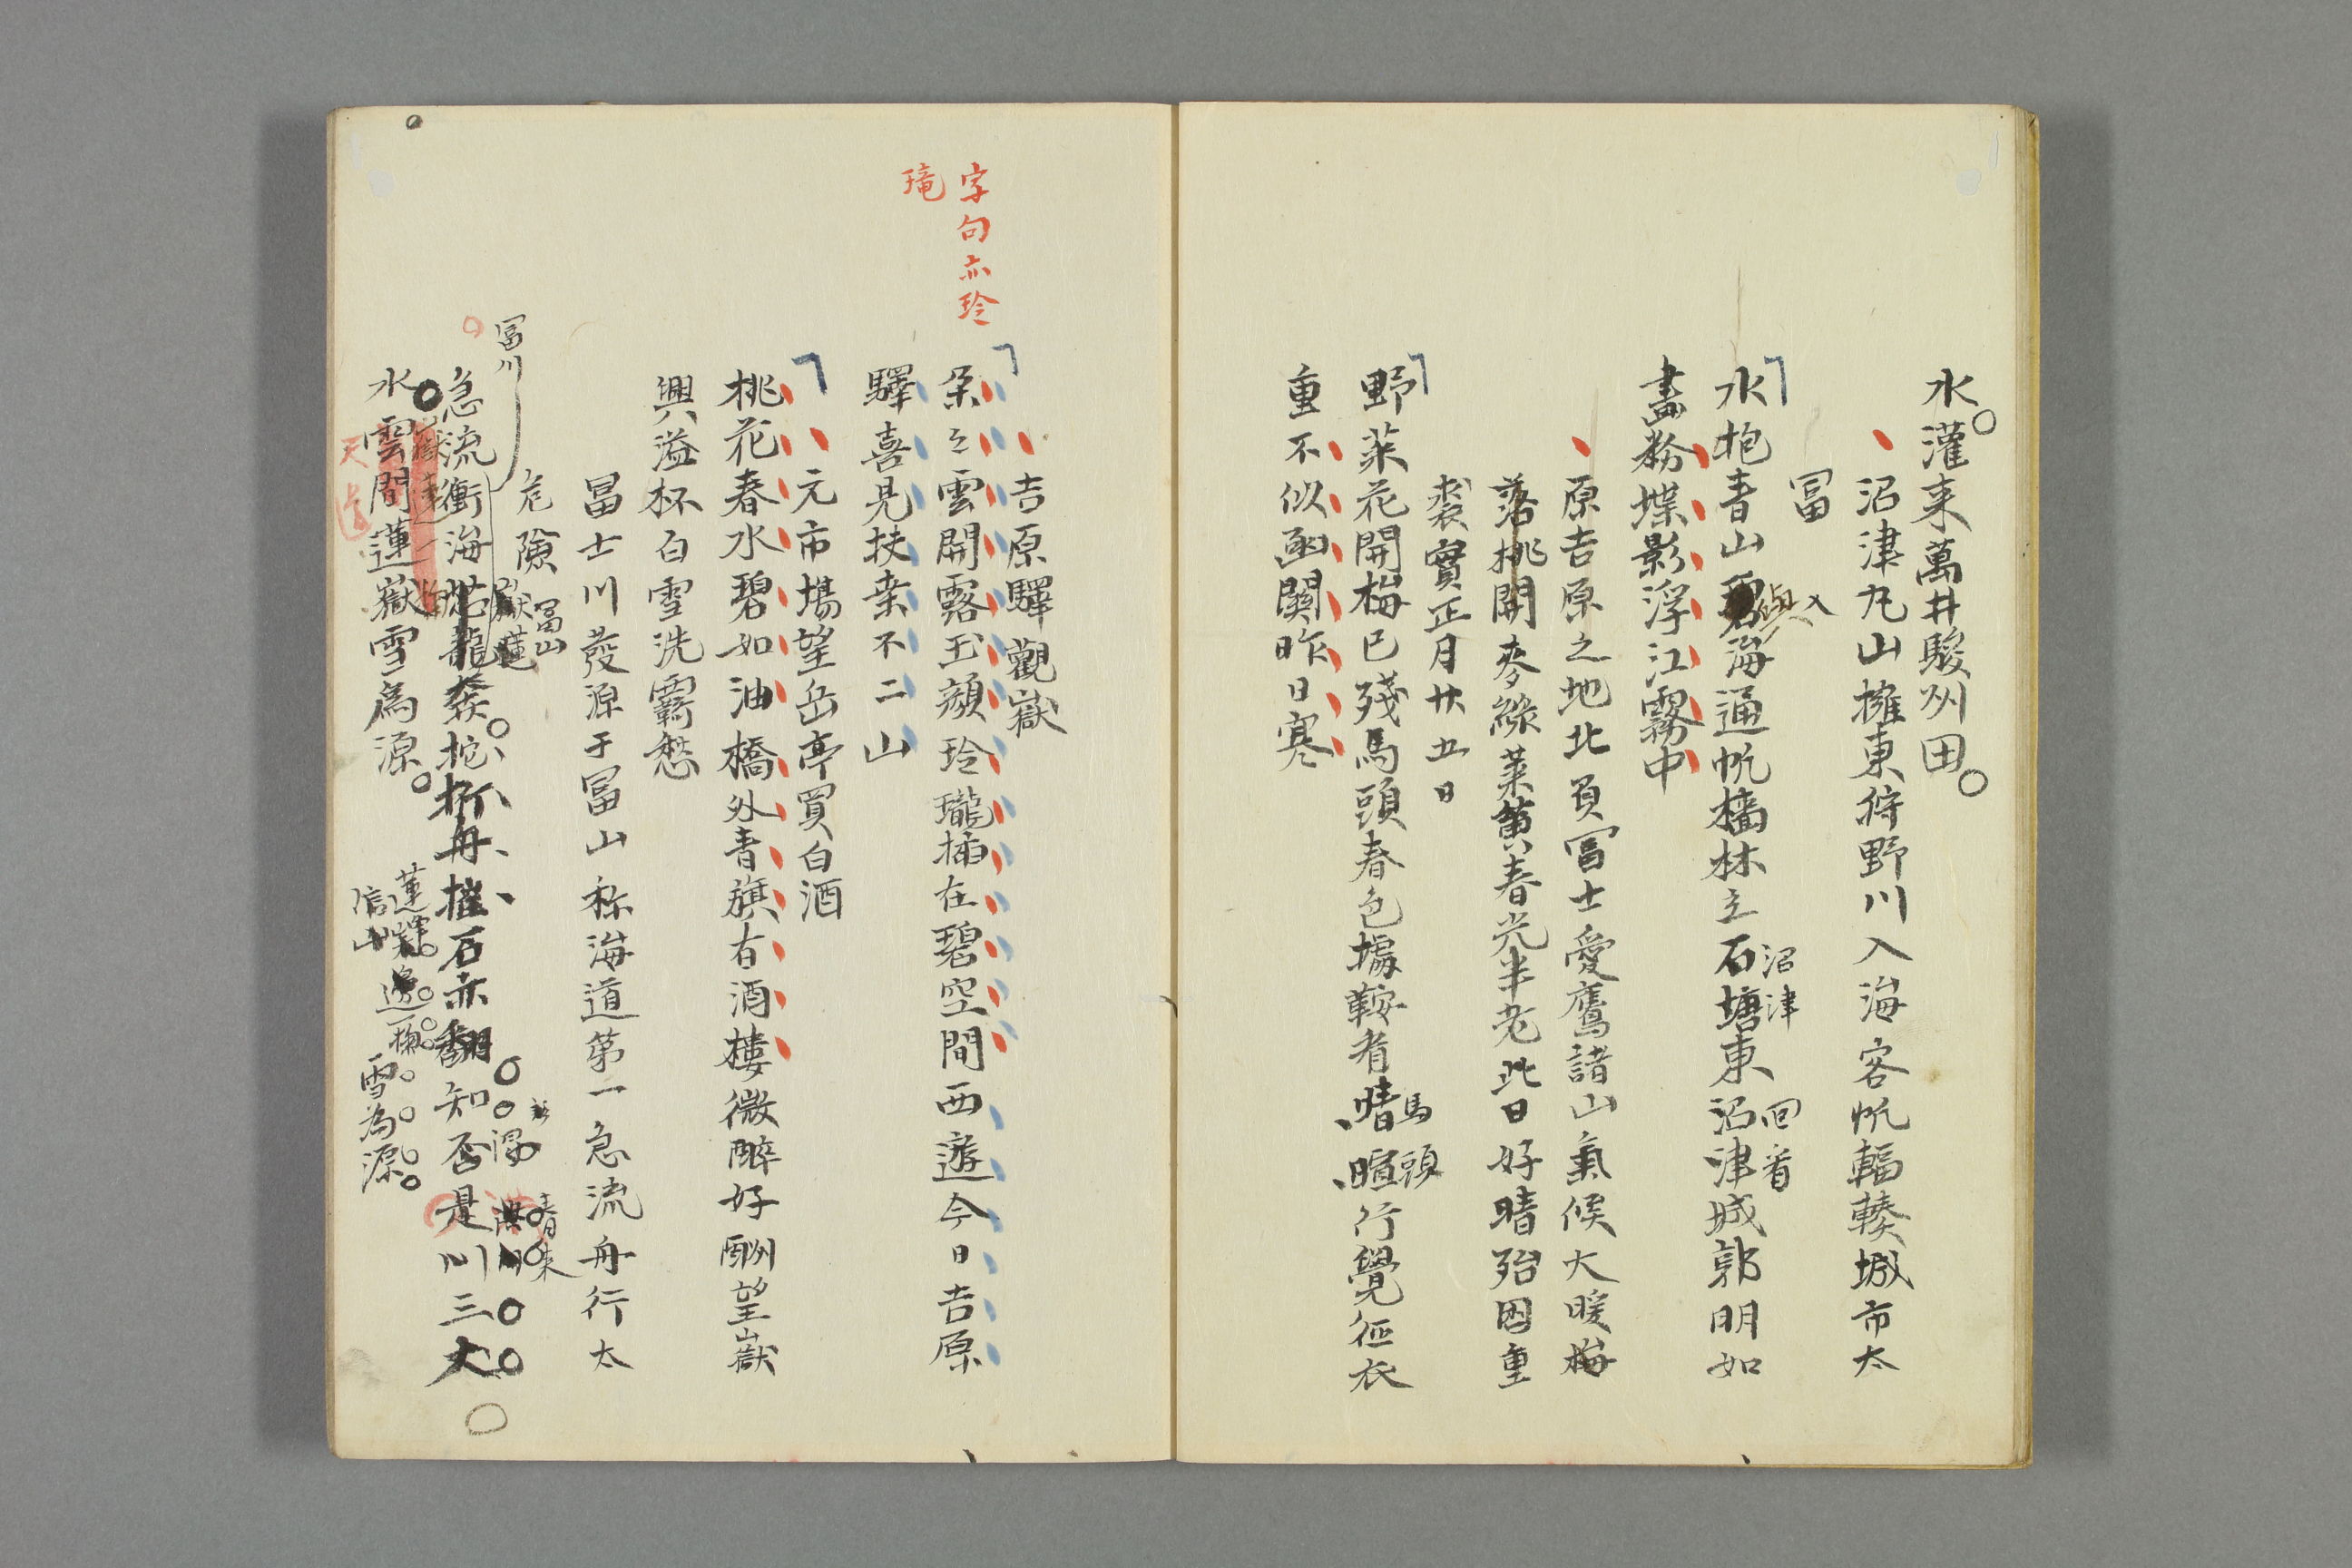 水灌来萬井駿州田
沼津丸山擁東狩野川入海客帆輻輳城市太
冨
水抱青山海通帆檣林立石塘東沼津城郭明如
與
沼津
回看
畫粉堞影浮江霧中
原吉原之地北負冨士愛鷹諸山氣候大暖梅
落桃開麥綠菜黄春光半老此日好晴殆因重
裘實正月廿五日
野菜花開梅已殘馬頭春色據鞍看晴暄行覺征衣
馬頭
重不似函關昨日寒
吉原驛觀嶽
字句亦玲
朶々雲開露玉顔玲瓏插在碧空間西遊今日吉原
驛喜見扶桒不二山
元市場望岳亭買白酒
桃花春水碧如油橋外青旗有酒樓微醉好酬望嶽
興溢杯白雪洗覊愁
冨士川發源于冨山称海道第一急流舟行太
危險
冨山
冨川
急流衝海龍蛇折舟摧石赤翻知否是川三大
春来
水雲間蓮嶽雪為源
蓮
信山
邊
雪為源